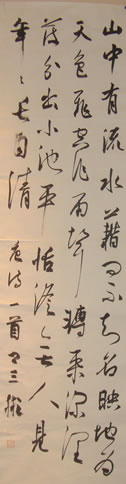 山中有流水藉問不知名映地為
天色飛空作雨聲轉來深澗
滿分出小池平恬澹無人見
年〻長自清
唐詩一首